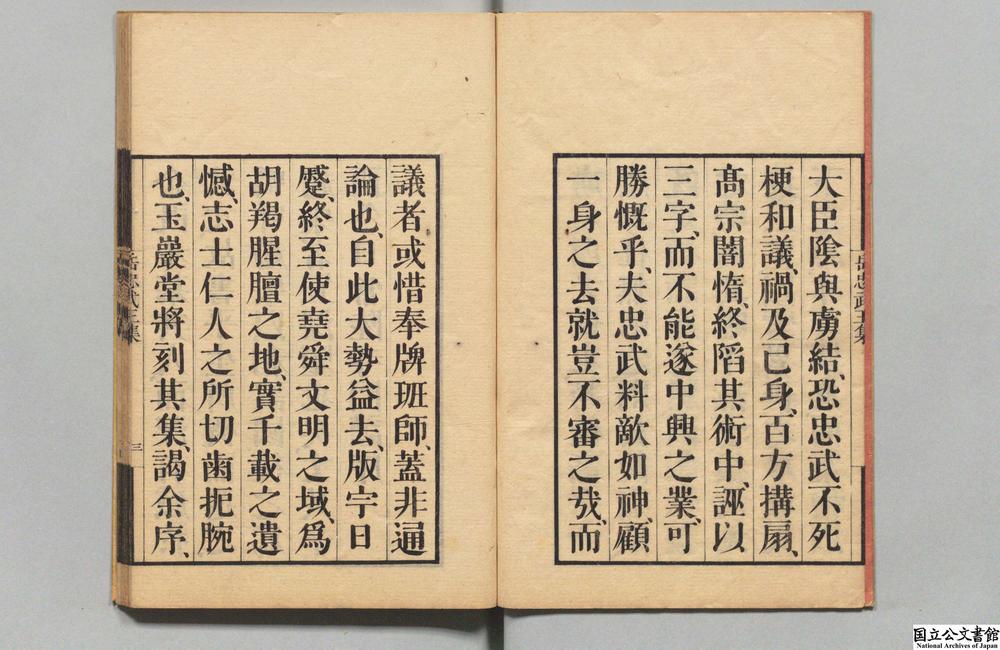 大臣陰與虜結、恐忠武不死
梗和議、禍及己身、百方搆扇、
髙宗闇惰、終䧟其術中、誣以
三字、而不能遂中興之業、可
勝慨乎、夫忠武料敵如神、顧
一身之去就豈不審之㢤、而
議者或惜奉牌班師、蓋非通
論也、自此大勢益去、版宇日
蹙、終至使堯舜文明之域、爲
胡羯腥膻之地、實千載之遺
憾、志士仁人之所切齒扼腕
也、玉巖堂將刻其集、謁余序、
岳忠武王集
三
岳忠武王集
国立公文書館
National Archives of Japan